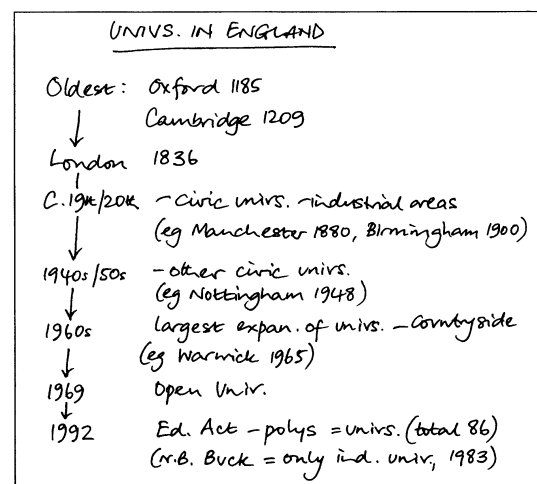 UNIVS. IN ENGLAND
Oldest: Oxford 1185
Cambridge 1209
London 1836
C.19th/20th - civic univs. - industrial areas
(eg Manchester 1880, Birmingham 1900)
1940s/50s - other civic univs.
(eg Nottingham 1948)
1960s largest expan. of univs. - countryside
(eg Warwick 1965)
1969 Open Univ.
1992 Ed. Act - polys = univs. (total 86)
(N.B. Buck = only ind. univ., 1983)